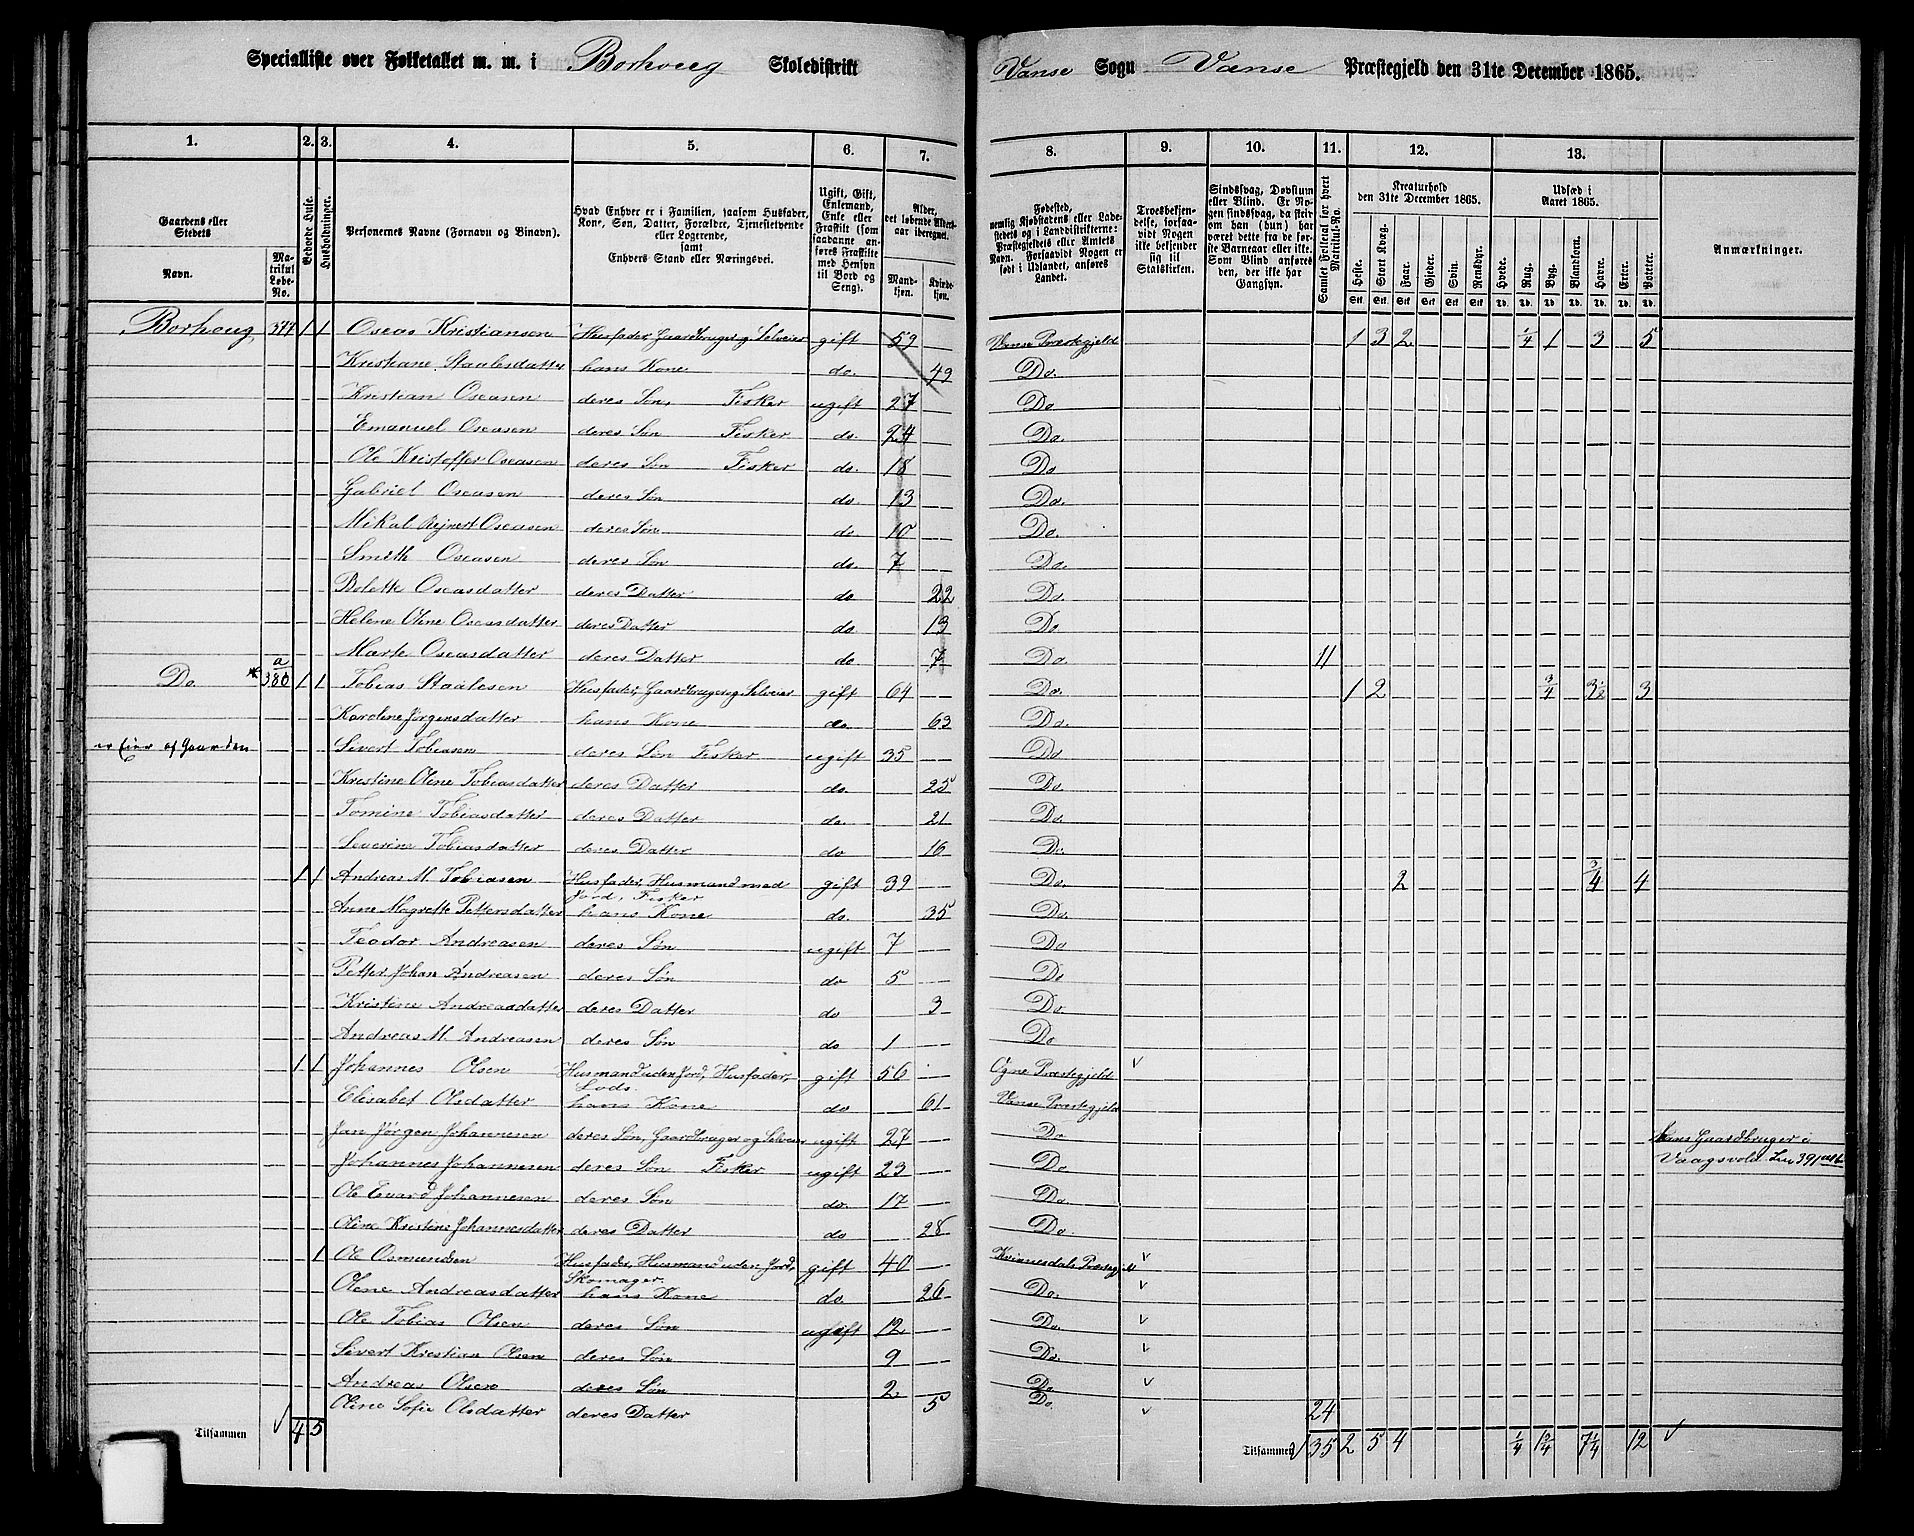 Specialliste over Folketallet m. m. i Borhoug Skoledistrikt Vanse Sogn Vanse Præstegjeld den 31te December 1865.
1. 2. 3. 4. 5. 6. 7. 8. 9. 10. 11. 12. 13.
Gaardens eller Stedets Navn. Matrikul Løbe-No. Beboede Huse. Husholdninger. Personernes Navne (Fornavn og Binavn). Hvad Enhver er i Familien, saasom Husfader, Kone, Søn, Datter, Forældre, Tjenestetyende eller Logerende, samt Enhvers Stand eller Næringsvei. Ugift, Gift, Enkemand, Enke eller Fraskilt (som saadanne anføres Fraskilte med Hensyn til Bord og Seng). Alder, det løbende Aldersaar iberegnet. Mandkjøn. Kvindekjøn. Fødested, nemlig Kjøbstadens eller Ladestedets og i Landdistrikterne: Præstegjeldets eller Amtets Navn. Forsaavidt Nogen er født i Udlandet, anføres Landet. Troesbekjendelse, forsaavidt Nogen ikke bekjender sig til Statskirken. Sindssvag, Døvstum eller Blind. Er Nogen sindssvag, da skrives om han (hun) har været dette fra de første Barneaar eller ikke. Som Blind anføres den, der ikke har Gangsyn. Samlet Folketal for hvert Matrikul-No. Kreaturhold den 31te December 1865. Heste. Stort Kvæg. Faar. Gjeder. Svin. Rensdyr. Udsæd i Aaret 1865. Hvede. Rug. Byg. Blandkorn. Havre. Erter. Poteter. Anmærkninger.
Stk. Stk. Stk. Stk. Stk. Stk. Td. Td. Td. Td. Td. Td. Td.
Borhoug, 377 1 1 Oseas Kristiansen Husfader, Gaardbruger og Selveier gift 59 Vanse Præstegjeld 1 3 2 1/4 1 3 5
Kristiane Staalesdatter hans Kone do. 49 Do.
Kristian Oseasen deres Søn, Fisker ugift 27 Do
Emanuel Oseasen deres Søn Fisker do. 24 Do.
Ole Kristoffer Oseasen deres Søn Fisker do. 18 Do
Gabriel Oseasen deres Søn do 13 Do.
Mikal Rejnert Oseasen deres Søn do. 10 Do.
Smith Oseasen deres Søn do. 7 Do.
Bolette Oseasdatter deres Datter do 22 Do
Helene Oline Oseasdatter deres Datter do. 13 Do
Marte Oseasdatter deres Datter do 7 Do 11
Do. * 380 a 1 1 Tobias Staalesen Husfader, Gaardbruger og Selveier gift 64 Do. 1 2 3/4 3 1/2 3
Karoline Jørgensdatter hans Kone do 63 Do.
er Eier af Gaarden Sivert Tobiasen deres Søn Fisker ugift 35 Do
Kristine Oline Tobiasdatter deres Datter do. 25 Do.
Tomine Tobiasdatter deres Datter do. 21 Do.
Severine Tobiasdatter deres Datter do 16 Do.
1 1 Andreas M. Tobiasen Husfader, Husmand med Jord, Fisker gift 39 Do. 2 3/4 4
Anne Magrette Pettersdatter hans Kone do. 35 Do.
Teodor Andreasen deres Søn ugift 7 Do
Petter Johan Andreasen deres Søn do 5 Do
Kristine Andreasdatter deres Datter do 3 Do.
Andreas M. Andreasen deres Søn do 1 Do
1 1 Johannes Olsen Husmand uden Jord, Husfader, Lods. gift 56 Ogne Præstegjeld v
Elisabet Olsdatter hans Kone do 61 Vanse Præstegjeld
Jan Jørgen Johannesen deres Søn, Gaardbruger og Selveier ugift 27 Do Hans Gaardbruger i
Johannes Johannesen deres Søn Fisker ugift 23 Do. Vaagsvold Lnr 391
Ole Evard Johannesen deres Søn do. 17 Do.
Oline Kristine Johannesdatter deres Datter do 28 Do.
1 Ole Osmundsen Husfader, Husmand uden Jord, Skomager. gift 40 Kvinnesdals Præstegjeld v
Olene Andreasdatter hans Kone do. 26 Do. v
Ole Tobias Olsen deres Søn ugift 12 Do. v
Sivert Kristian Olsen deres Søn 9 Do. v
Andreas Olsen deres Søn 2 Do v
Oline Sofie Olsdatter deres Datter 5 Do. v 24
Tilsammen 4 5 Tilsammen 35 2 5 4 1/4 1 3/4 7 1/4 12 v